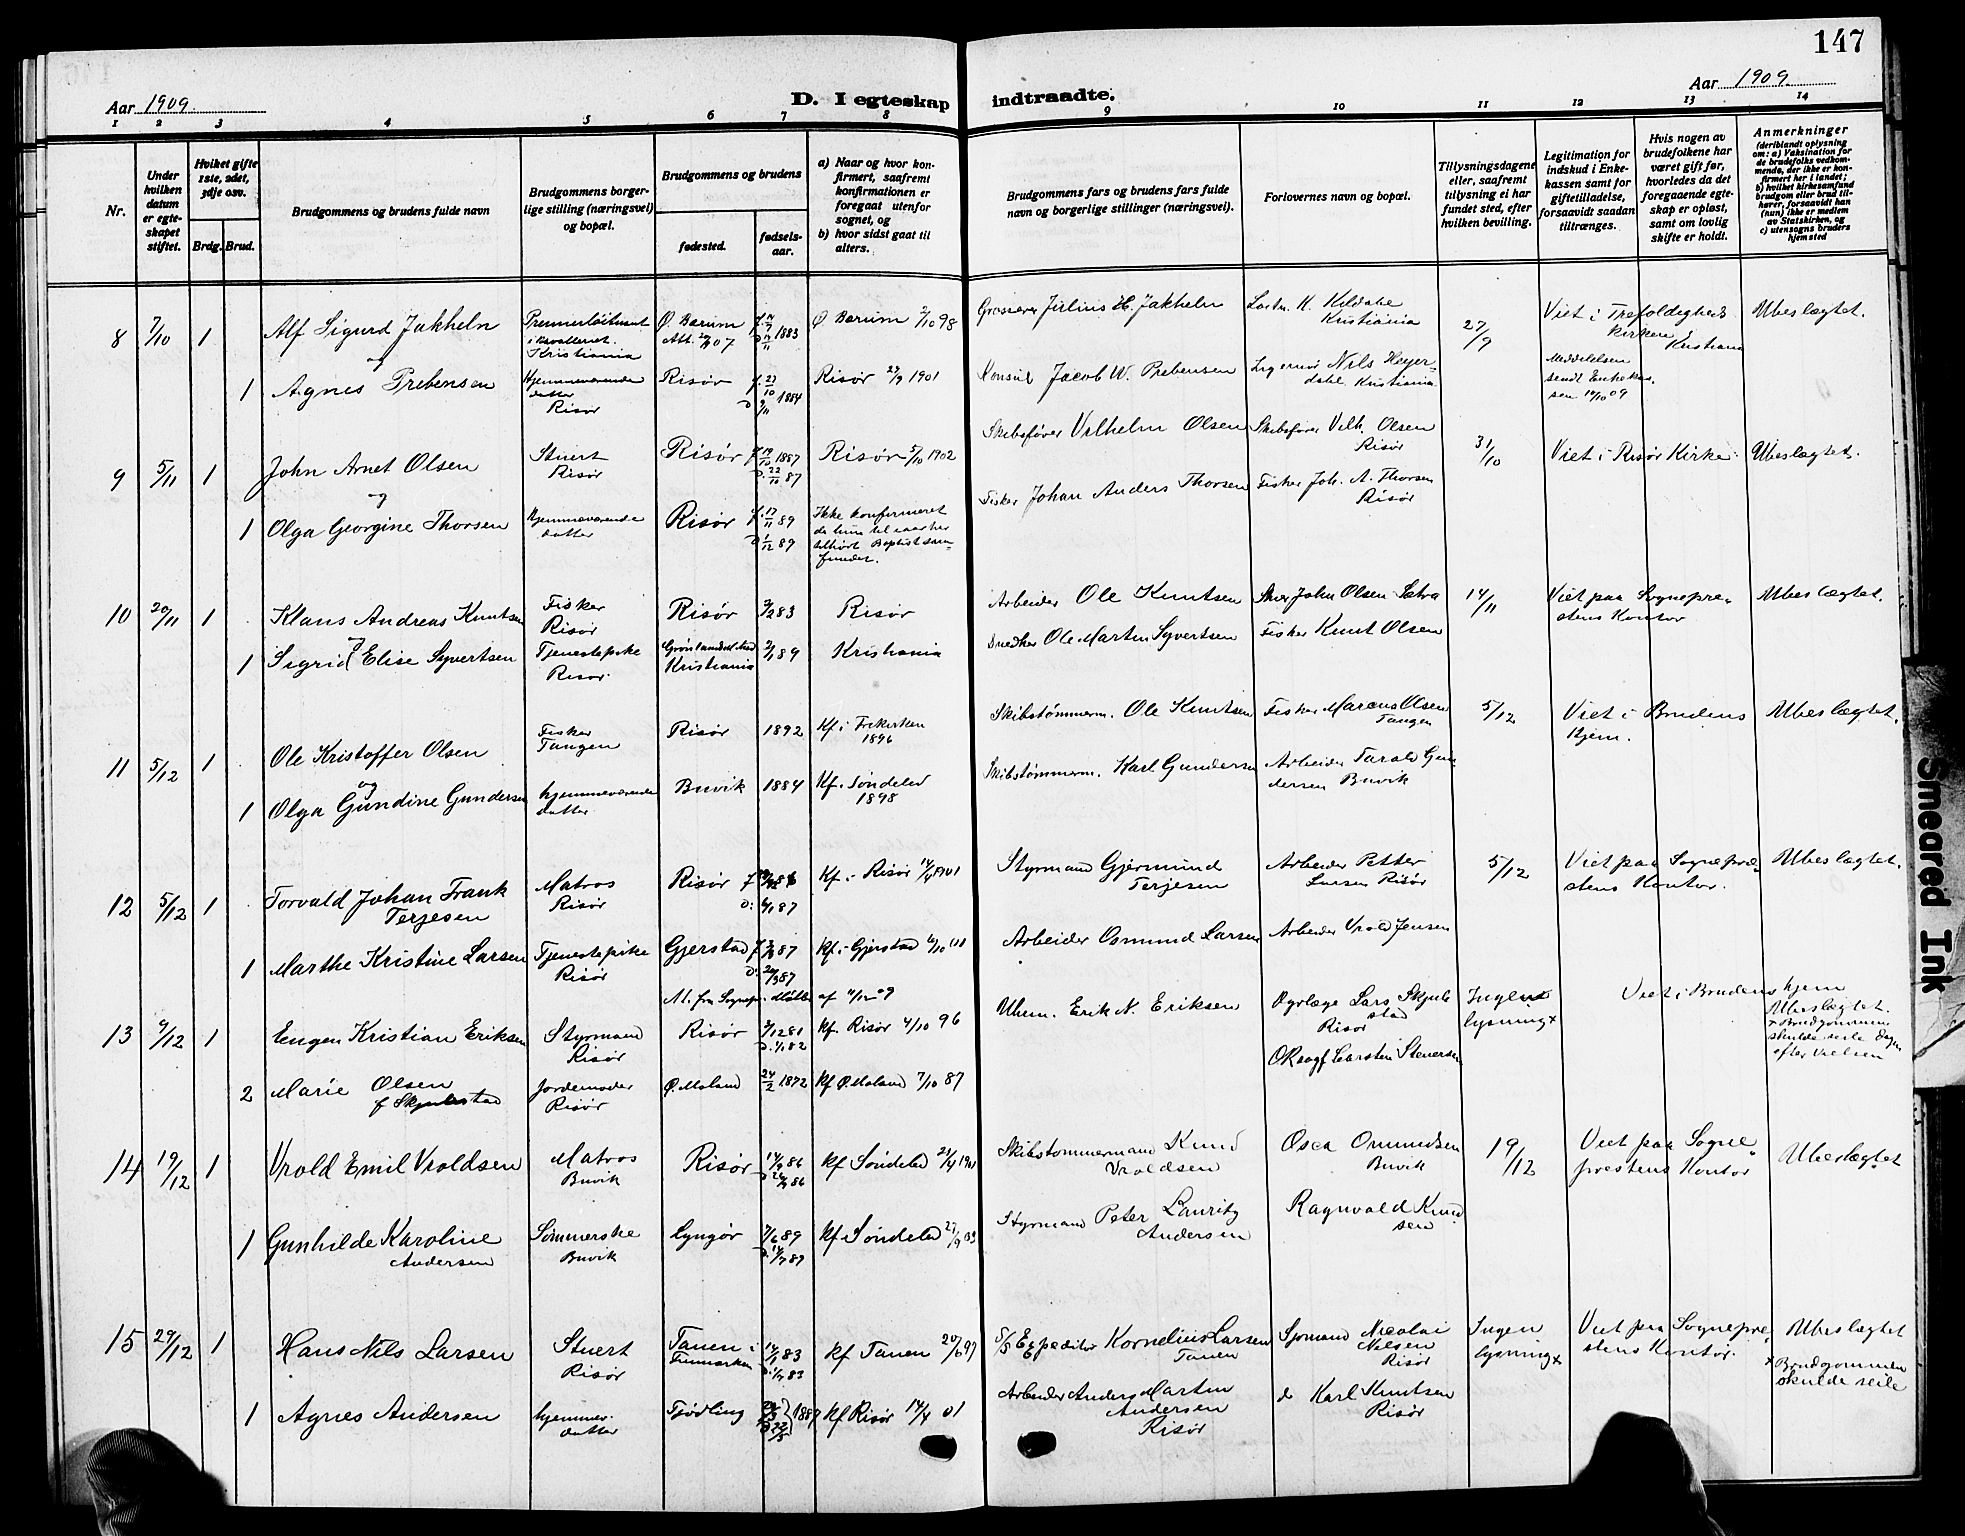 147
Aar 1909
D. I egteskap indtraadte.
Aar 1909
1 2 3 4 5 6 7 8 9 10 11 12 13 14
Nr.
Under hvilken datum er egteskapet stiftet.
Hvilket gifte 1ste, 2det, 3dje osv.
Brdg. Brud.
Brudgommens og brudens fulde navn
Brudgommens borgerlige stilling (næringsvei) og bopæl.
Brudgommens og brudens
fødested.
fødselsaar.
a) Naar og hvor konfirmert, saafremt konfirmationen er foregaat utenfor sognet, og
b) hvor sidst gaat til alters.
Brudgommens fars og brudens fars fulde navn og borgerlige stillinger (næringsvei).
Forlovernes navn og bopæl.
Tillysningsdagene eller, saafremt tilysning ei har fundet sted, efter hvilken bevilling.
Legitimation for indskud i Enkekassen samt for giftetilladelse, forsaavidt saadan tiltrænges.
Hvis nogen av brudefolkene har været gift før, hvorledes da det foregaaende egteskap er opløst, samt om lovlig skifte er holdt.
Anmerkninger (deriblandt oplysning om: a) Vaksination for de brudefolks vedkommende, der ikke er konfirmert her i landet; b) hvilket kirkesamfund brudgom eller brud tilhører, forsaavidt han (hun) ikke er medlem av Statskirken, og c) utensogns bruders hjemsted
8 7/10 1 Alf Sigurd Jakheln Premierløitnant i Kavalleriet. Kristiania Ø. Bærum 1883 Ø Bærum 2/10 98 Grosserer Julius H. Jakheln Kristiania 27/9 Viet i Trefoldigheds kirken i Kristiania Ubeslægtet.
og
1 Agnes Prebensen Hjemmeværende datter Risør Risør f. 23/10 1884 Risør 29/9 1901 Konsul Jacob W. Prebensen Nils Heyerdahl Kristiania Meddelelsen sendt Enkekassen 14/10 09
9 5/11 1 John Arnet Olsen Stuert Risør Risør f 19/10 1887 d. 22/10 87 Risør 5/10 1902 Skibsfører Vilhelm Olsen Skibsfører Vilh. Olsen Risør 31/10 Viet i Risør Kirke. Ubeslægtet.
og
1 Olga Georgine Thorsen Hjemmeværende datter Risør f. 17/11 89 d 1/12 89 Ikke konfirmeret da hun til iaar har tilhørt Baptistsamfundet. Fisker Johan Anders Thorsen Fisker Joh. A. Thorsen Risør
10 20/11 1 Klaus Andreas Knutsen Fisker Risør Risør 3/2 83 Risør Arbeider Ole Knutsen John Olsen 14/11 Viet paa Sogneprestens Kontor Ubeslægtet.
og
1 Sigrid Elise Syvertsen Tjenestepike Risør. Kristiania 2/1 89 Kristiania Snedker Ole Martin Syvertsen Fisker Knut Olsen
11 5/12 1 Ole Kristoffer Olsen Fisker Tangen Risør 1892 Kf. i Frikirken 1896 Skibstømmerm. Ole Knutsen Fisker Marcus Olsen Tangen 5/12 Viet i Brudens Hjem. Ubeslægtet.
og
1 Olga Gundine Gundersen hjemmeværende datter Buvik 1884 Kf. Søndeled 1898 Skibstømmerm. Karl Gundersen Arbeider Tarald Gundersen Buvik
12 5/12 1 Torvald Johan Frank Terjesen Matros Risør Risør d: 6/1 87 Kf. i Risør 14/4 1901 Styrmand Gjermund Terjesen Arbeider Petter Larsen Risør 5/12 Viet paa Sogneprestens Kontor. Ubeslægtet.
1 Marthe Kristine Larsen Tjenestepike Risør Gjerstad Kf. i Gjerstad Arbeider Osmund Larsen Arbeider Vrold Jensen
13 9/12 1 Eugen Kristian Eriksen Styrmand Risør Risør 3/12 81 kf. Risør 4/10 96 Uhrm. Erik N. Eriksen Dyrlæge Lars Skjulestad Risør Ingen lysning x Viet i Brudens hjem Ubeslægtet. x Brudgommen skulde seile dagen efter Vielsen
2 Marie Olsen f Skjulestad Jordemoder Risør Ø. Moland 24/2 1872 kf Ø. Moland 7/10 87 Carsten Stenersen
14 19/12 1 Vrold Emil Vroldsen Matros Buvik Risør 14/9 86 kf Søndeled 21/4 1901 Skibstømmermand Knud Vroldsen Osca Omundsen Buvik 19/12 Viet paa Sogneprestens Kontor Ubeslægtet
1 Gunhilde Karoline Andersen Sømmerske Buvik Lyngør 7/6 89 kf Søndeled 27/9 03 Styrmand Peter Lauritz Andersen Ragnvald Knudsen
15 29/12 1 Hans Nils Larsen Stuert Risør Tanen i Finmarken 14/1 83 kf Tanen 20/6 97 Expeditør Kornelius Larsen Tanen Sjømand Nicolai Nilsen Risør Ingen lysning x Viet paa Sogneprestens Kontor. Ubeslægtet x Brudgommen skulde seile
1 Agnes Andersen hjemmev. datter Tjødling 1887 kf Risør 14/4 01 Arbeider Anders Martin Andersen Risør Karl Knutsen Risør
Smeared Ink